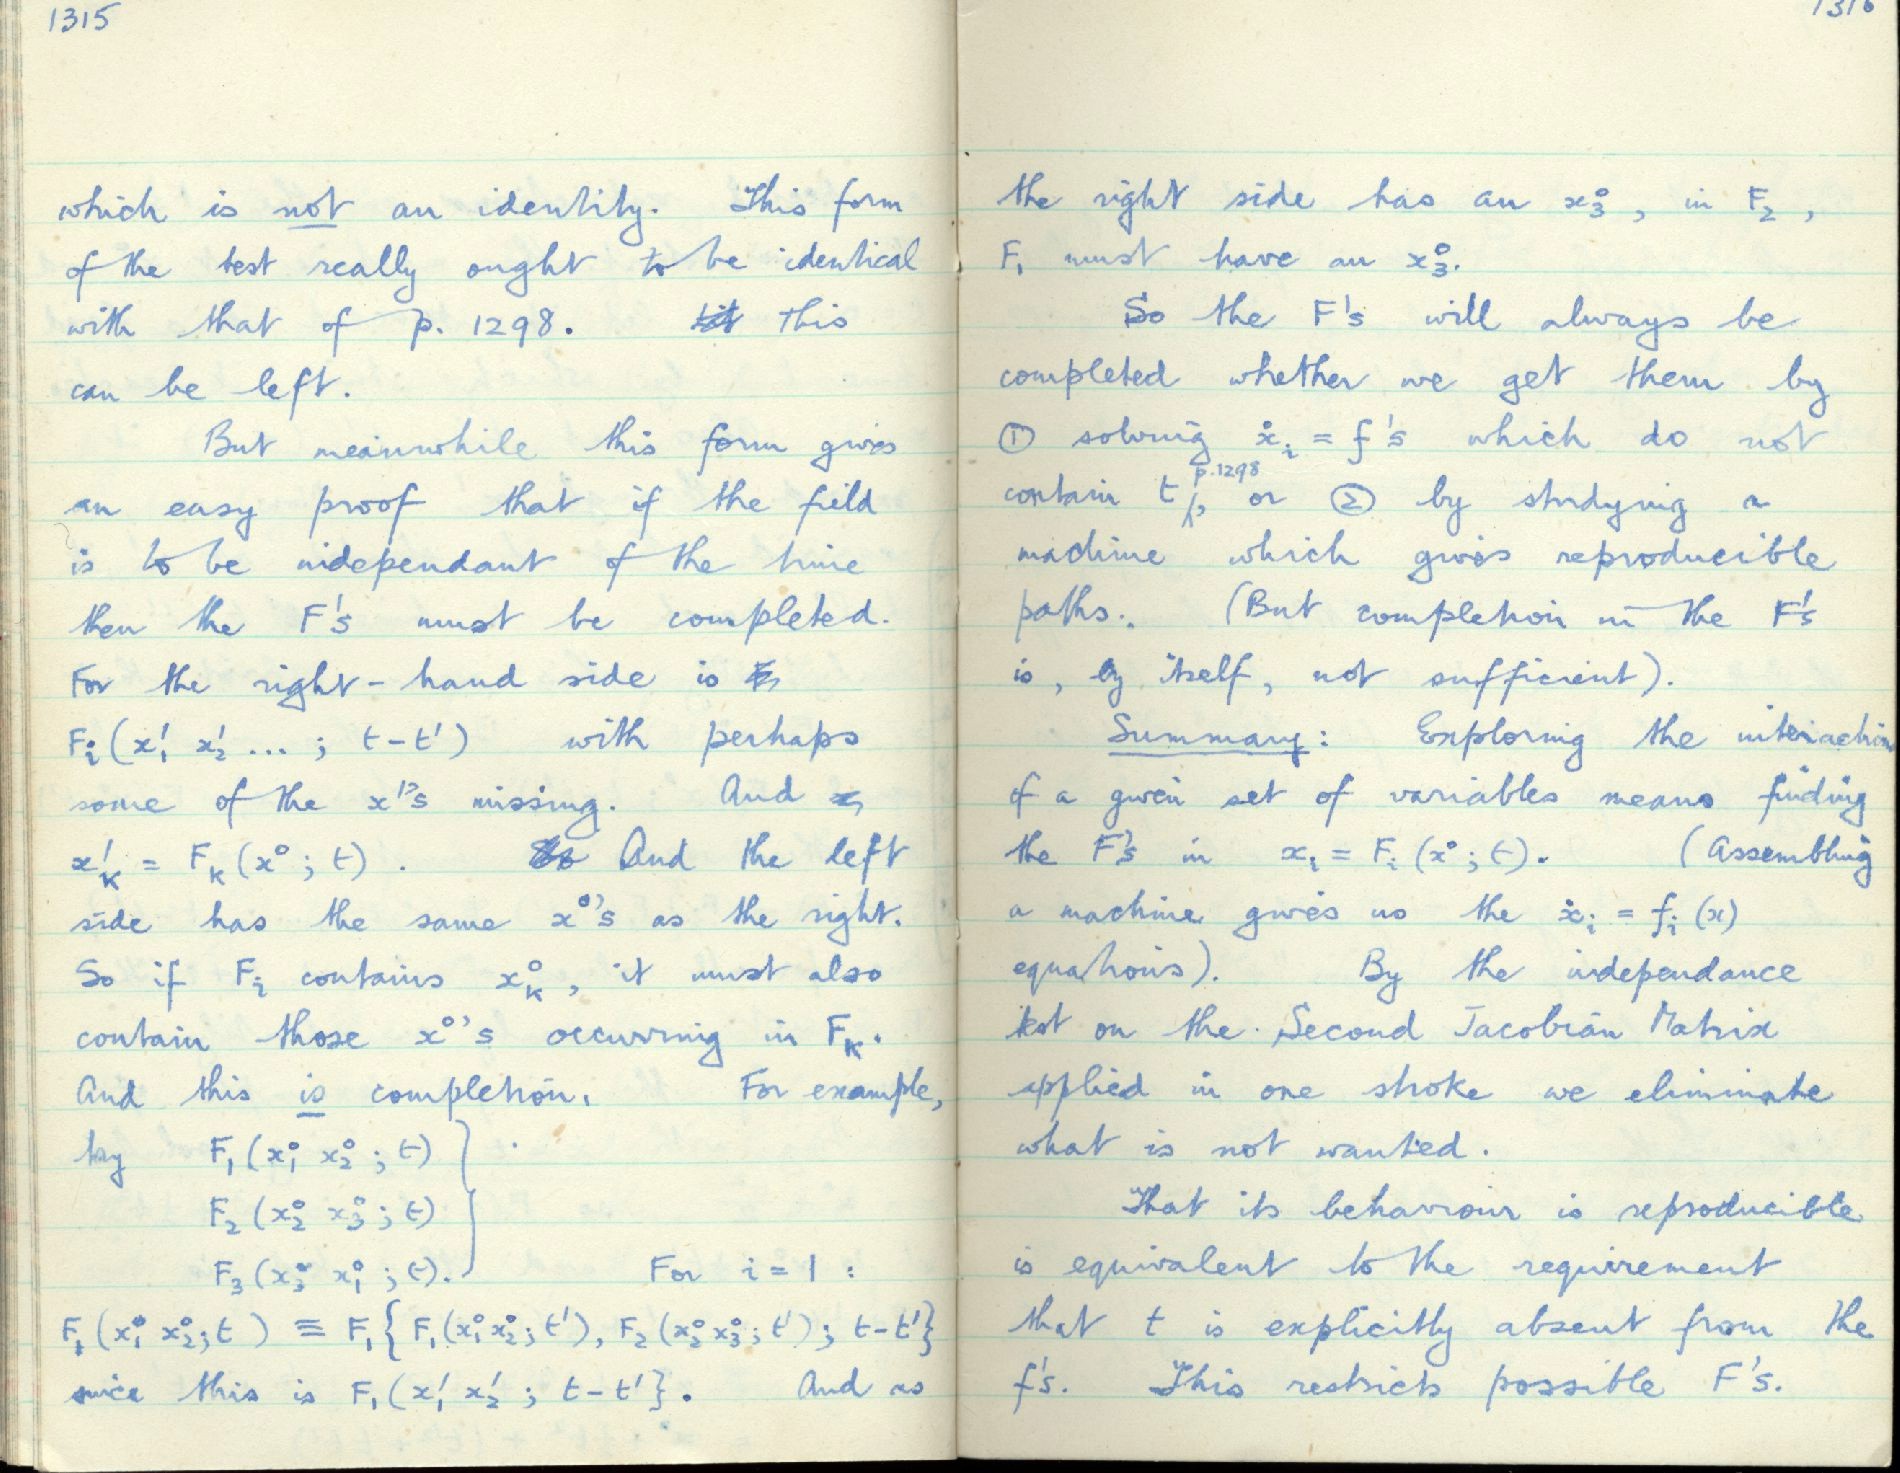 1315
which is not an identity. This form
of the test really ought to be identical
with that of p. 1298. This
can be left.
But meanwhile this form gives
an easy proof that if the field
is to be independant of the time
then the F's must be completed.
For the right-hand side is
Fi (x'1 x'2 ... ; t-t') with perhaps
some of the x's missing. And
x'K = FK (x°; t). And the left
side has the same x°'s as the right.
So if Fi contains x°K, it must also
contain those x°'s occurring in FK.
And this is completion. For example,
try F1 (x°1 x°2 ; t)
F2 (x°2 x°3 ; t)
F3 (x°3 x°1 ; t). For i = 1 :
F1 (x°1 x°2; t) ≡ F1 { F1 (x°1 x°2; t'), F2 (x°2 x°3; t'); t-t'}
since this is F1 (x'1 x'2 ; t-t'}. And as
1316
the right side has an x°3, in F2,
F1 must have an x°3.
So the F's will always be
completed whether we get them by
① solving ẋi = f's which do not
contain t, p.1298 or ② by studying a
machine which gives reproducible
paths. (But completion in the F's
is, by itself, not sufficient).
Summary: Exploring the interaction
of a given set of variables means finding
the F's in xi = Fi (x°; t). (Assembling
a machine gives us the ẋi = fi (x)
equations). By the independance
test on the Second Jacobian Matrix
applied in one stroke we eliminate
what is not wanted.
That its behaviour is reproducible
is equivalent to the requirement
that t is explicitly absent from the
f's. This restricts possible F's.